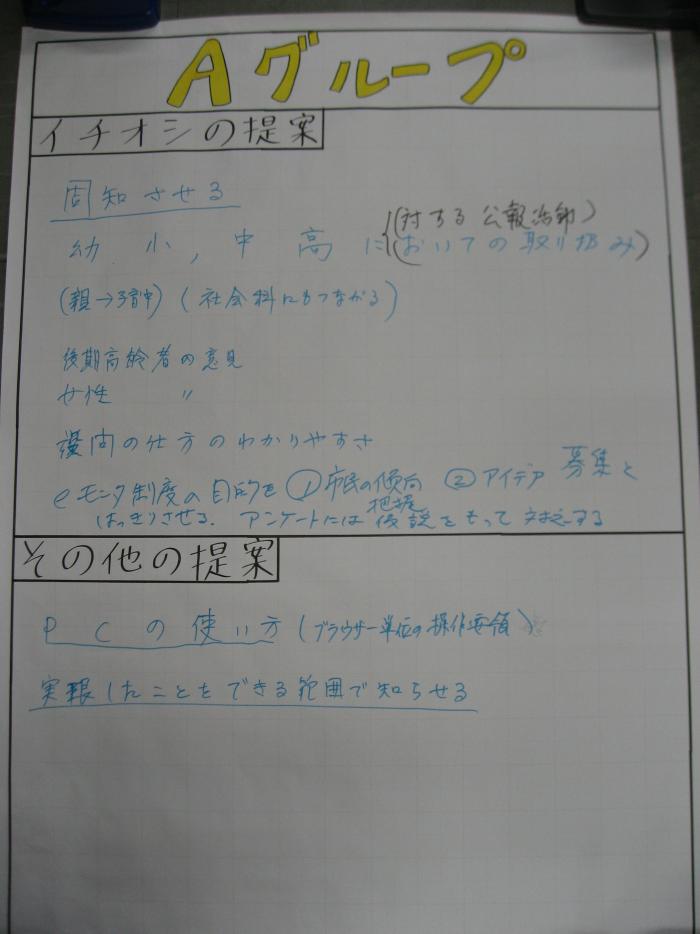 Aグループ
イチオシの提案
周知させる
幼 小, 中 高 に (対する 公報活動)
(おいての取り組み)
(親→) (社会科にもつながる)
後期高齢者の意見
女性 〃
設問の仕方のわかりやすさ
eモニタ制度の目的を ①市民の傾向把握 ②アイデア 募集と
はっきりさせる. アンケートには仮説をもって対応する
その他の提案
PCの使い方 (ブラウザー単位の操作要領)
実現したことをできる範囲で知らせる